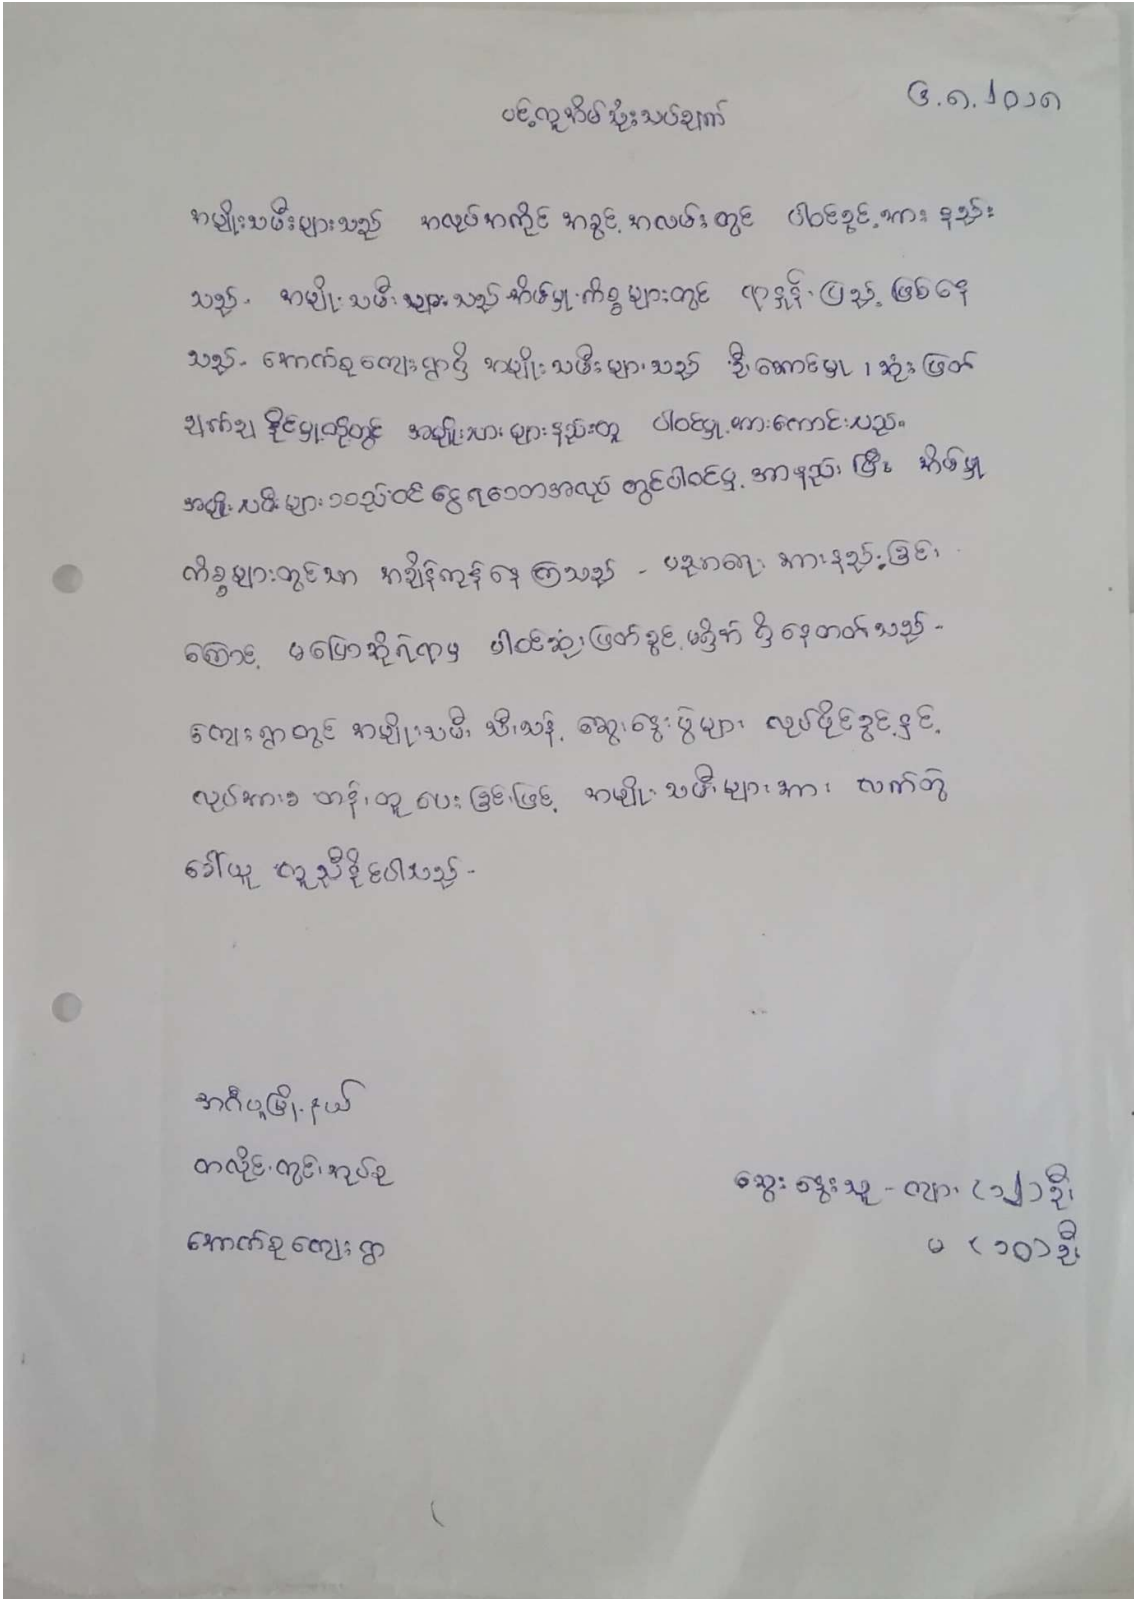 ၆.၈.၂၀၁၈
ပင့်ကူအိမ်သုံးသပ်ချက်
အမျိုးသမီးများသည် အလုပ်အကိုင် အခွင့်အလမ်းတွင် ပါဝင်ခွင့်အားနည်း
သည်- အမျိုးသမီးများသည် အိမ်မှုကိစ္စများတွင် ရာနှုန်းပြည့်ဖြစ်နေ
သည်- အောက်စုကျေးရွာရှိ အမျိုးသမီးများသည် ဦးဆောင်မှု၊ ဆုံးဖြတ်
ချက်ချနိုင်မှုတို့တွင် အမျိုးသားများနည်းတူ ပါဝင်မှုအားကောင်းသည်။
အမျိုးသမီးများသည်ဝင်ငွေရသောအလုပ် တွင်ပါဝင်မှု အာနည်းပြီး အိမ်မှု
ကိစ္စများတွင်သာ အချိန်ကုန်နေကြသည်- ပညာရေး အားနည်းခြင်း
ကြောင့် မပြောဆိုရဲရာမှ ပါဝင်ဆုံးဖြတ်ခွင့် မရှိဘဲ ရှိနေတတ်သည်-
ကျေးရွာတွင် အမျိုးသမီး သီးသန့် ဆွေးနွေးပွဲများ လုပ်ပိုင်ခွင့်နှင့်
လုပ်အားခ တန်းတူပေးခြင်းဖြင့် အမျိုးသမီးများအား လက်တွဲ
ခေါ်ယူ ကူညီနိုင်ပါသည်-
အင်္ဂပူမြို့နယ်
တလိုင်းကွင်းအုပ်စု
အောက်စုကျေးရွာ
ဆွေးနွေးသူ - ကျား (၁၂)ဦး
မ (၁၀)ဦး